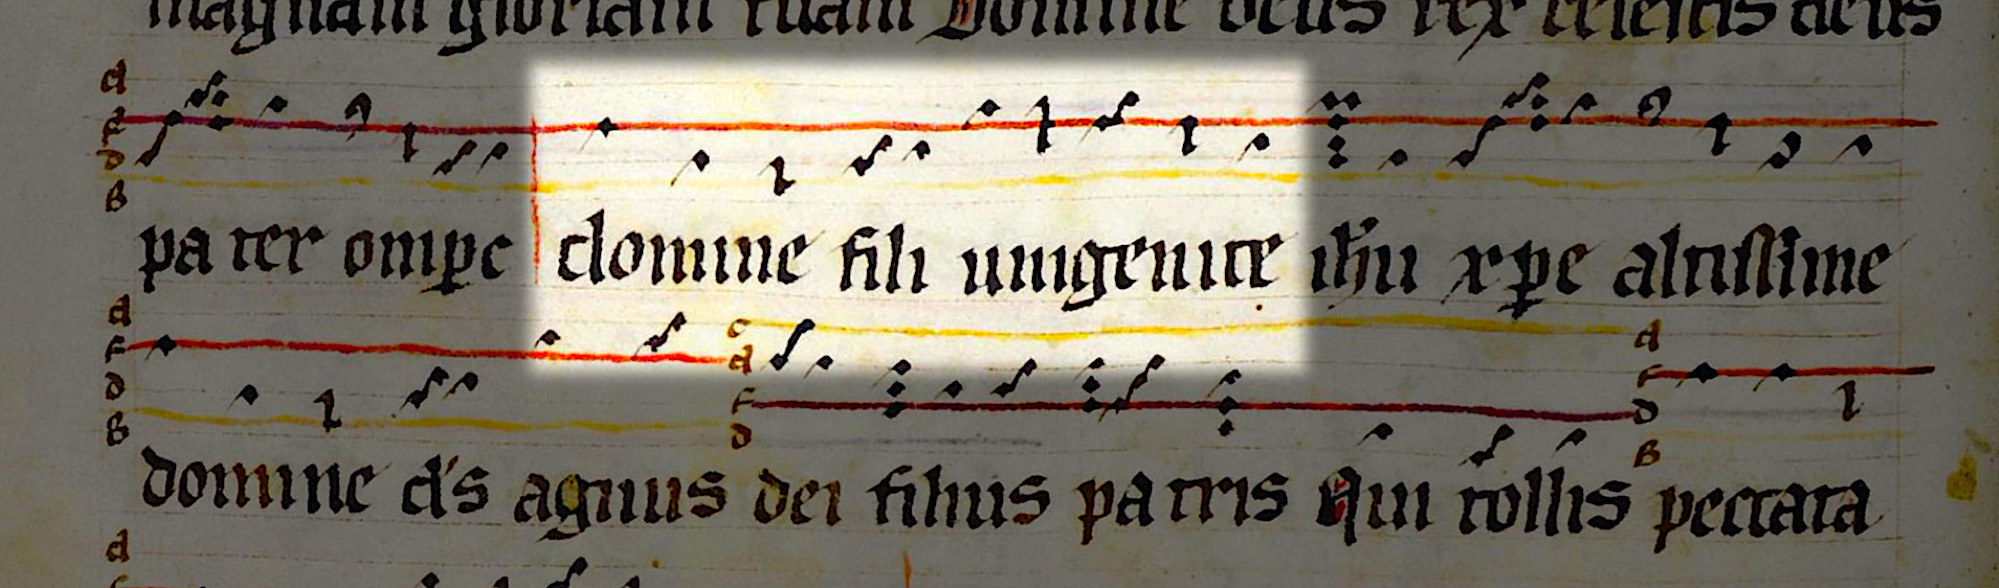 magnam gloriam tuam Domine deus rex celestis deus
d
F
D
B
pater omps domine fili unigenite ihu xpe altissime
d
F
D
B
c
a
F
D
d
F
D
B
domine ds agnus dei filius patris Qui tollis peccata
d